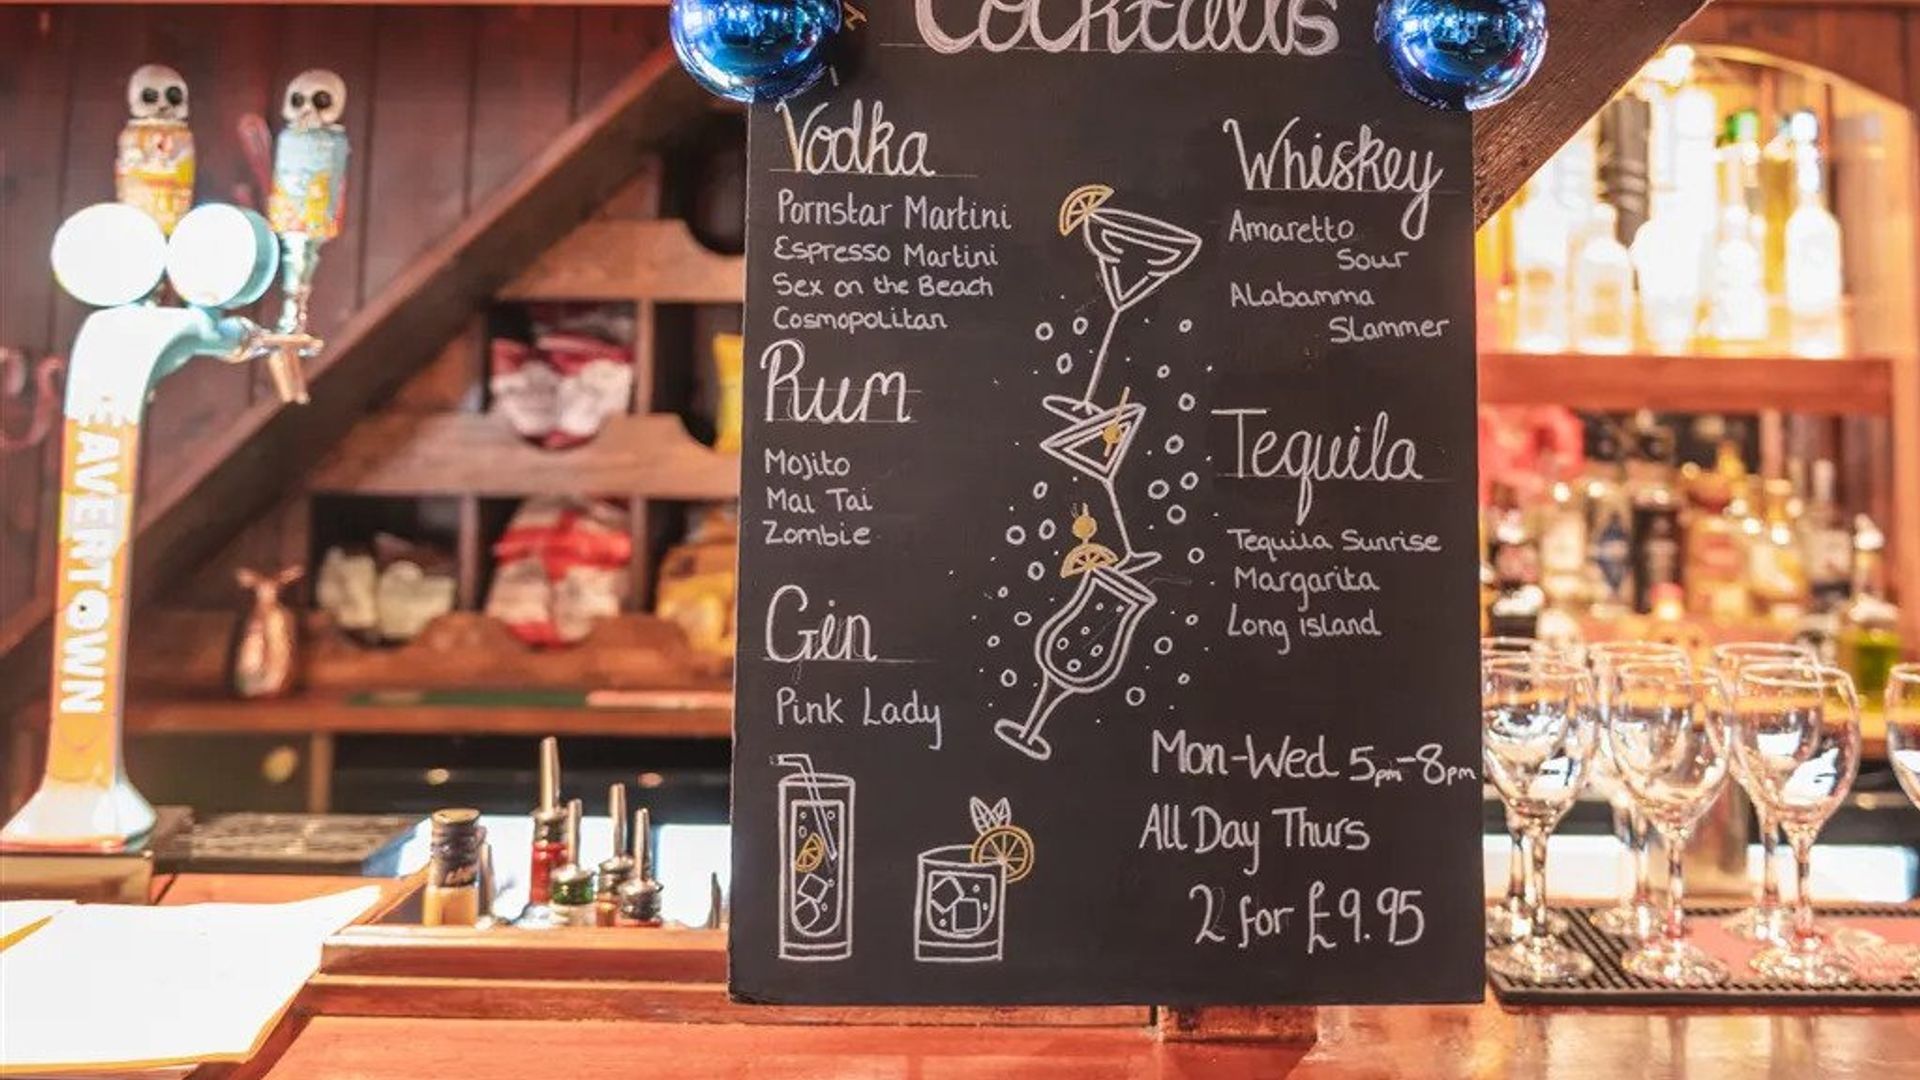 Cocktails
Vodka
Pornstar Martini
Espresso Martini
Sex on the Beach
Cosmopolitan
Rum
Mojito
Mai Tai
Zombie
Gin
Pink Lady
Whiskey
Amaretto
Sour
Alabamma
Slammer
Tequila
Tequila Sunrise
Margarita
Long island
Mon-Wed 5pm-8pm
All Day Thurs
2 for £9.95
BEAVERTOWN